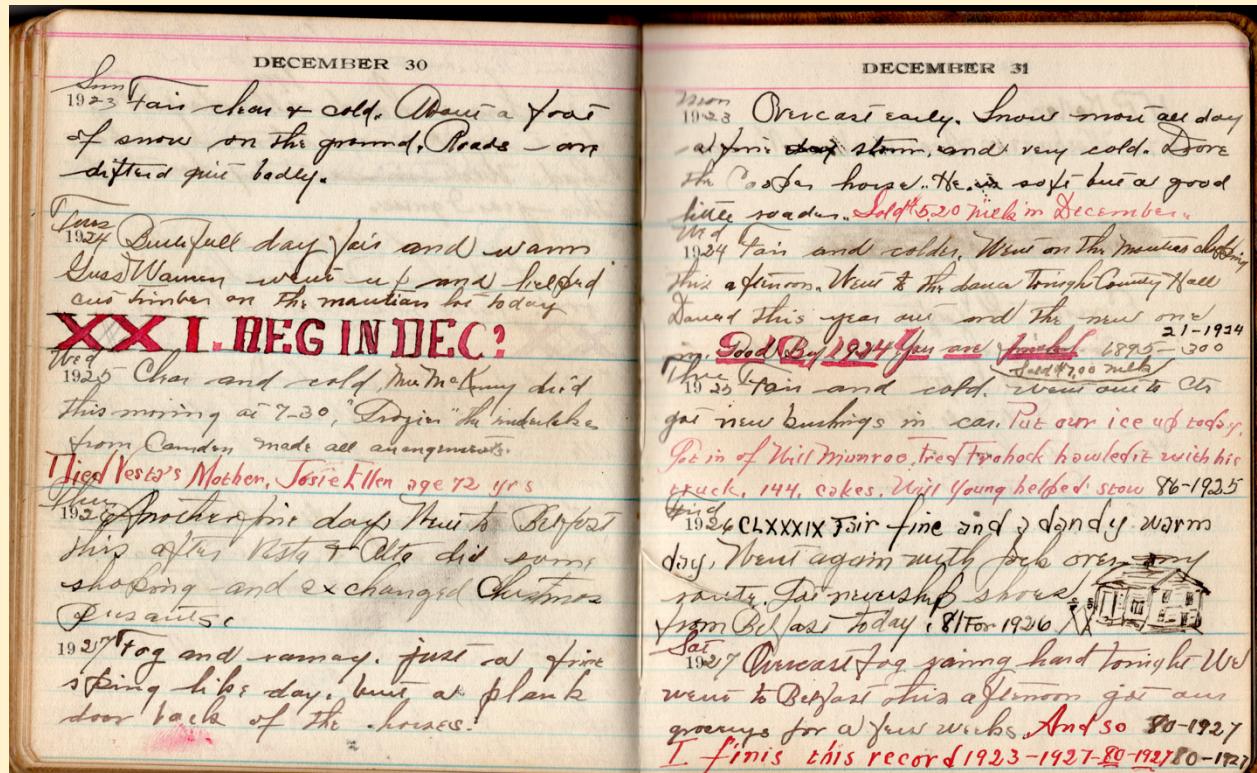 DECEMBER 30
Sun
1923 Fair clear & cold. About a foot
of snow on the ground. Roads - are
drifterd quit badly.
Tues
1924 Buitefull day fair and warm
Guss Warren went up and helped
cut timber on the mountian lot today
XXI. BEG IN DEC?
Wed
1925 Clear and cold, Mrs McKenny died
this morning at 7-30, "Trozier" the undertaker
from Camden made all arrangements.
Died Vesta's Mother, Josie Ellen age 72 yrs
Thur
1926 Another fine day. Went to Belfast
this after Vesta & Alta did some
shopking and exchanged Christmas
presants.
1927 Fog and rainay. just a fine
spring like day. built a plank
door back of the horses.
DECEMBER 31
Mon
1923 Overcast early. Snow most all day
a fine day storm, and very cold. Drove
the Cooper horse. He is soft but a good
little roader. Sold $5.20 milk in December.
Wed
1924 Fair and colder. Went on the mountian chopping
this afternoon. Went to the dance tonight County Hall
Danced this year out and the new one
in. Good By 1924 You are finished 1895-300
21-1924
Sold $7.00 milk
Thur
1925 Fair and cold. went out to
got new bushings in car. Put our ice up today.
Got in of Will Munroe, Fred Frohock hawled it with his
truck. 144. cakes. Will Young helped stow 86-1925
Frid
1926 CLXXXIX Fair fine and a dandy warm
day. Went again with Jack over my
route. shoes
from Belfast today. 81 For 1926
Sat
1927 Overcast fog raining hard tonight We
went to Belfast this afternoon got our
grocerys for a few weeks. And so 80-1927
I finis this record 1923-1927-80-1927 80-1927